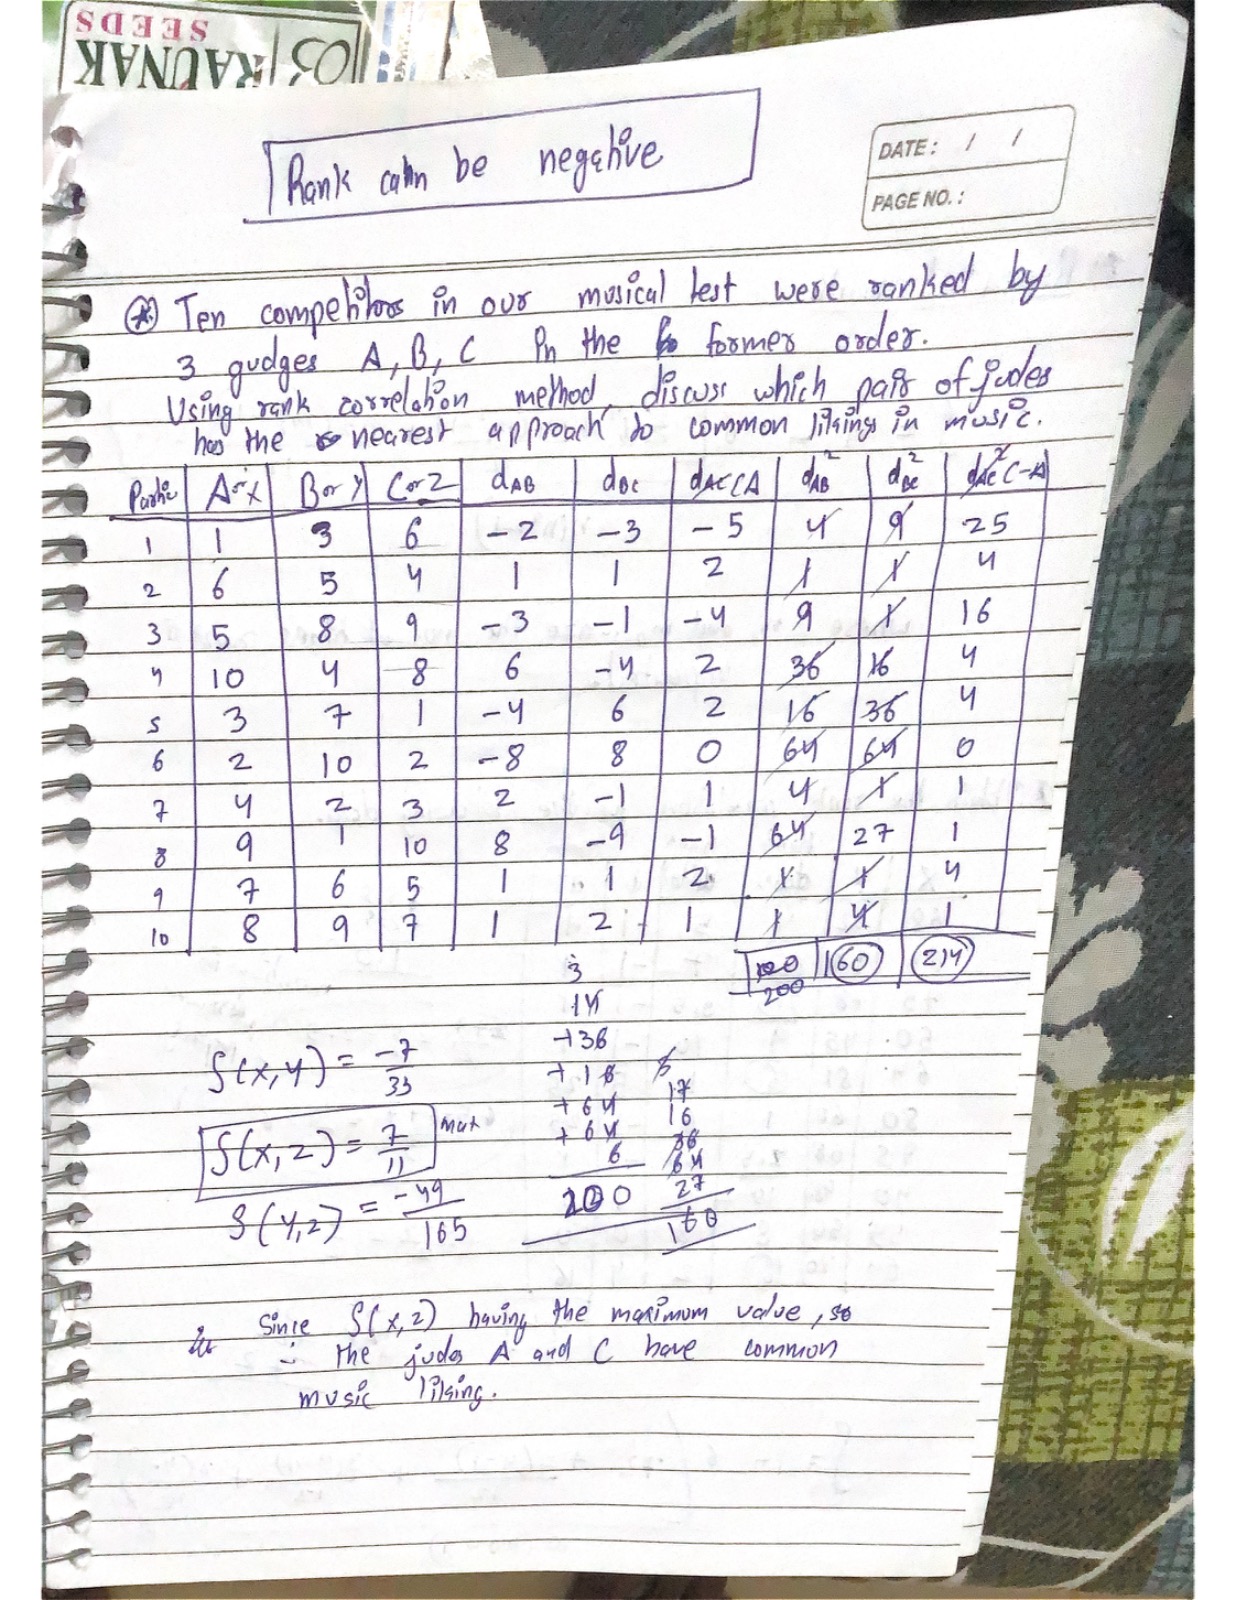 RAUNAK
SEEDS
Rank can be negative
DATE: / /
PAGE NO.:
Ten competitors in our musical test were ranked by
3 gudges A, B, C in the former order.
Using rank correlation method, discuss which pair of judes
has the nearest approach to common likings in music.
A or X B or Y C or Z dAB dBC dAC CA d²AB d²BC d²AC C-A
1 1 3 6 -2 -3 -5 4 9 25
2 6 5 4 1 1 2 1 1 4
3 5 8 9 -3 -1 -4 9 1 16
4 10 4 8 6 -4 2 36 16 4
5 3 7 1 -4 6 2 16 36 4
6 2 10 2 -8 8 0 64 64 0
7 4 2 3 2 -1 1 4 1 1
8 9 1 10 8 -9 -1 64 27 1
9 7 6 5 1 1 2 1 1 4
10 8 9 7 1 2 1 1 4 1
200 160 214
3
14
+36
+16
+64 17
+64 16
6 36
64
200 27
160
ρ(x,y) = -7/33
ρ(x,z) = 7/11 max
ρ(y,z) = -49/165
Since ρ(x,z) having the maximum value, so
the judes A and C have common
music liking.